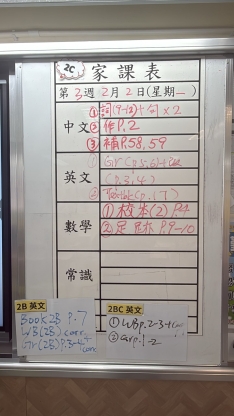 2C 家課表
第3週 2月2日(星期一)
中文
①詞(9-12)+句x2
②作P.2
③補P.58,59
英文
① Gr(p.5,6)+
(p.3,4)
② Textbk(p.17)
數學
①校本(2)P.4
② P.9-10
常識
2B 英文
Book 2B p.7
WB(2B) corr.
Gr(2B)p.3-4+
corr
2BC 英文
① WBp.2-3+Corr
② Grp.1-2